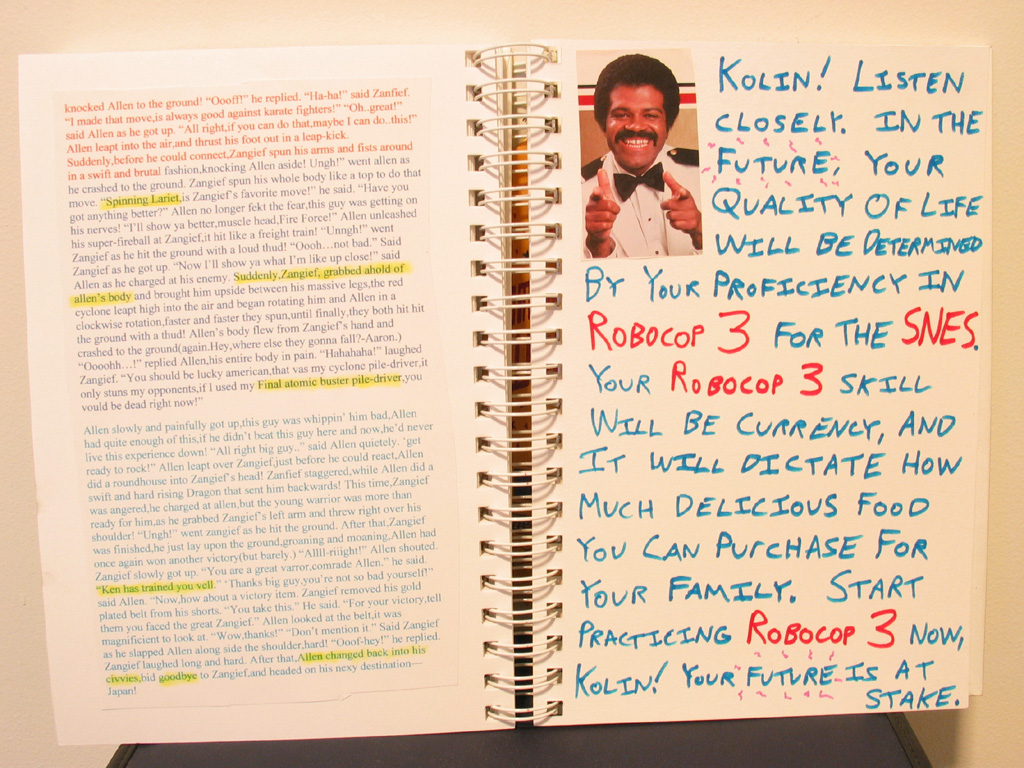 knocked Allen to the ground! “Oooff!” he replied. “Ha-ha!” said Zanfief.
“I made that move,is always good against karate fighters!” “Oh..great!”
said Allen as he got up. “All right,if you can do that,maybe I can do..this!”
Allen leapt into the air,and thrust his foot out in a leap-kick.
Suddenly,before he could connect,Zangief spun his arms and fists around
in a swift and brutal fashion,knocking Allen aside! Ungh!” went allen as
he crashed to the ground. Zangief spun his whole body like a top to do that
move. “Spinning Lariet,is Zangief’s favorite move!” he said. “Have you
got anything better?” Allen no longer fekt the fear,this guy was getting on
his nerves! “I’ll show ya better,muscle head,Fire Force!” Allen unleashed
his super-fireball at Zangief,it hit like a freight train! “Unngh!” went
Zangief as he hit the ground with a loud thud! “Oooh...not bad.” Said
Zangief as he got up. “Now I’ll show ya what I’m like up close!” said
Allen as he charged at his enemy. Suddenly,Zangief, grabbed ahold of
allen’s body and brought him upside between his massive legs,the red
cyclone leapt high into the air and began rotating him and Allen in a
clockwise rotation,faster and faster they spun,until finally,they both hit hit
the ground with a thud! Allen’s body flew from Zangief’s hand and
crashed to the ground(again.Hey,where else they gonna fall?-Aaron.)
“Oooohh…!” replied Allen,his entire body in pain. “Hahahaha!” laughed
Zangief. “You should be lucky american,that vas my cyclone pile-driver,it
only stuns my opponents,if I used my Final atomic buster pile-driver,you
vould be dead right now!”
Allen slowly and painfully got up,this guy was whippin’ him bad,Allen
had quite enough of this,if he didn’t beat this guy here and now,he’d never
live this experience down! “All right big guy..” said Allen quietly. ‘get
ready to rock!” Allen leapt over Zangief,just before he could react,Allen
did a roundhouse into Zangief’s head! Zanfief staggered,while Allen did a
swift and hard rising Dragon that sent him backwards! This time,Zangief
was angered,he charged at allen,but the young warrior was more than
ready for him,as he grabbed Zangief’s left arm and threw right over his
shoulder! “Ungh!” went zangief as he hit the ground. After that,Zangief
was finished,he just lay upon the ground,groaning and moaning,Allen had
once again won another victory(but barely.) “Allll-riiight!” Allen shouted.
Zangief slowly got up. “You are a great varror,comrade Allen.” he said.
“Ken has trained you vell.” ‘Thanks big guy,you’re not so bad yourself!”
said Allen. “Now,how about a victory item. Zangief removed his gold
plated belt from his shorts. “You take this.” He said. “For your victory,tell
them you faced the great Zangief.” Allen looked at the belt,it was
magnificient to look at. “Wow,thanks!” “Don’t mention it.” Said Zangief
as he slapped Allen along side the shoulder,hard! “Ooof-hey!” he replied.
Zangief laughed long and hard. After that,Allen changed back into his
civvies,bid goodbye to Zangief,and headed on his nexy destination—
Japan!
KOLIN! LISTEN
CLOSELY. IN THE
FUTURE, YOUR
QUALITY OF LIFE
WILL BE DETERMINED
BY YOUR PROFICIENCY IN
ROBOCOP 3 FOR THE SNES.
YOUR ROBOCOP 3 SKILL
WILL BE CURRENCY, AND
IT WILL DICTATE HOW
MUCH DELICIOUS FOOD
YOU CAN PURCHASE FOR
YOUR FAMILY. START
PRACTICING ROBOCOP 3 NOW,
KOLIN! YOUR FUTURE IS AT
STAKE.